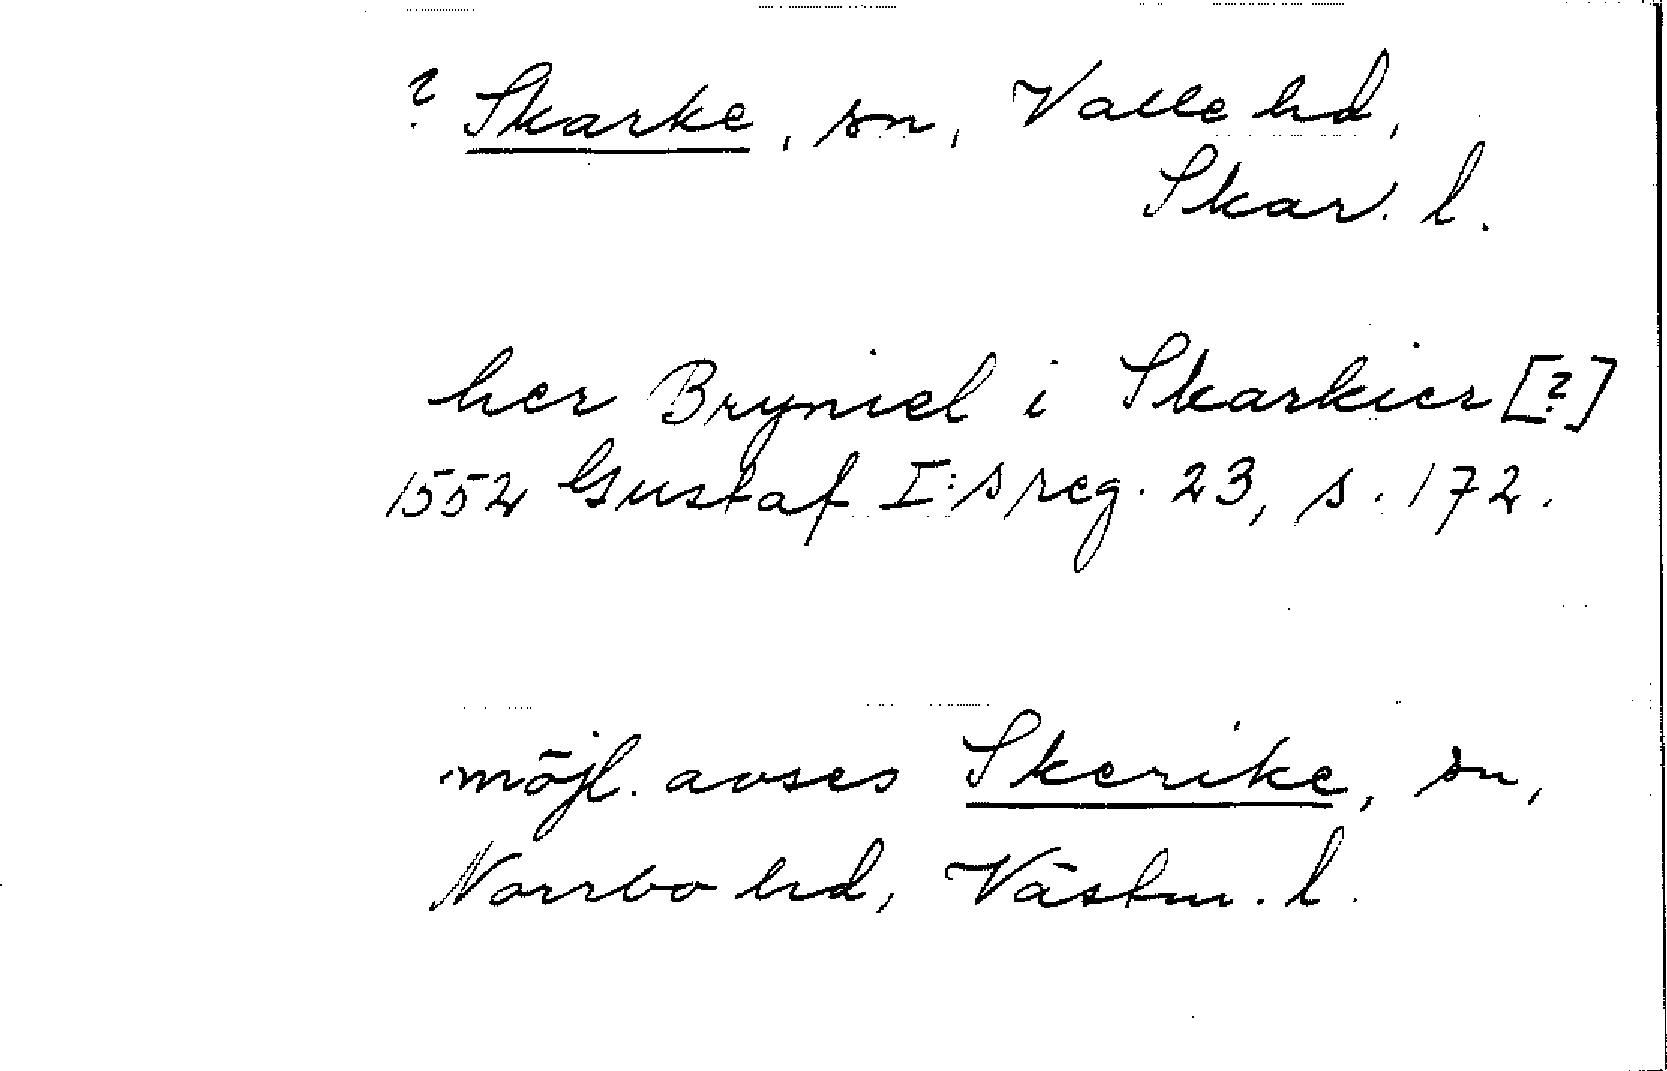 ? Skarke, sn, Valle hd,
Skar. l.
her Bryniel i Skarkier [?]
1552 Gustaf I:s reg. 23, s. 172.
möjl. avses Skerike, sn,
Norrbo hd, Västm. l.